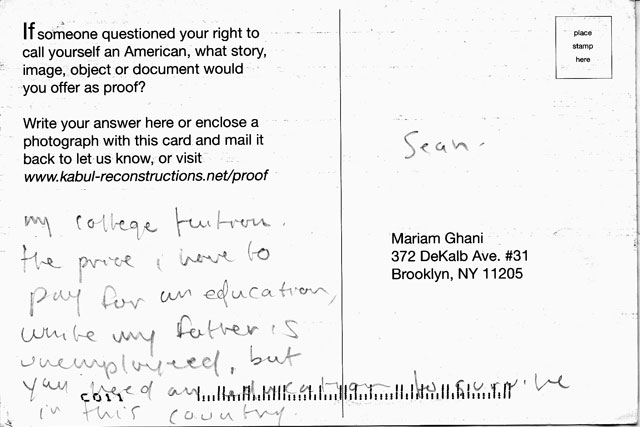 If someone questioned your right to
call yourself an American, what story,
image, object or document would
you offer as proof?
Write your answer here or enclose a
photograph with this card and mail it
back to let us know, or visit
www.kabul-reconstructions.net/proof
my college tuition.
the price i have to
pay for an education,
while my father is
unemployeed, but
you need an education to survive
in this country.
place
stamp
here
Sean.
Mariam Ghani
372 DeKalb Ave. #31
Brooklyn, NY 11205